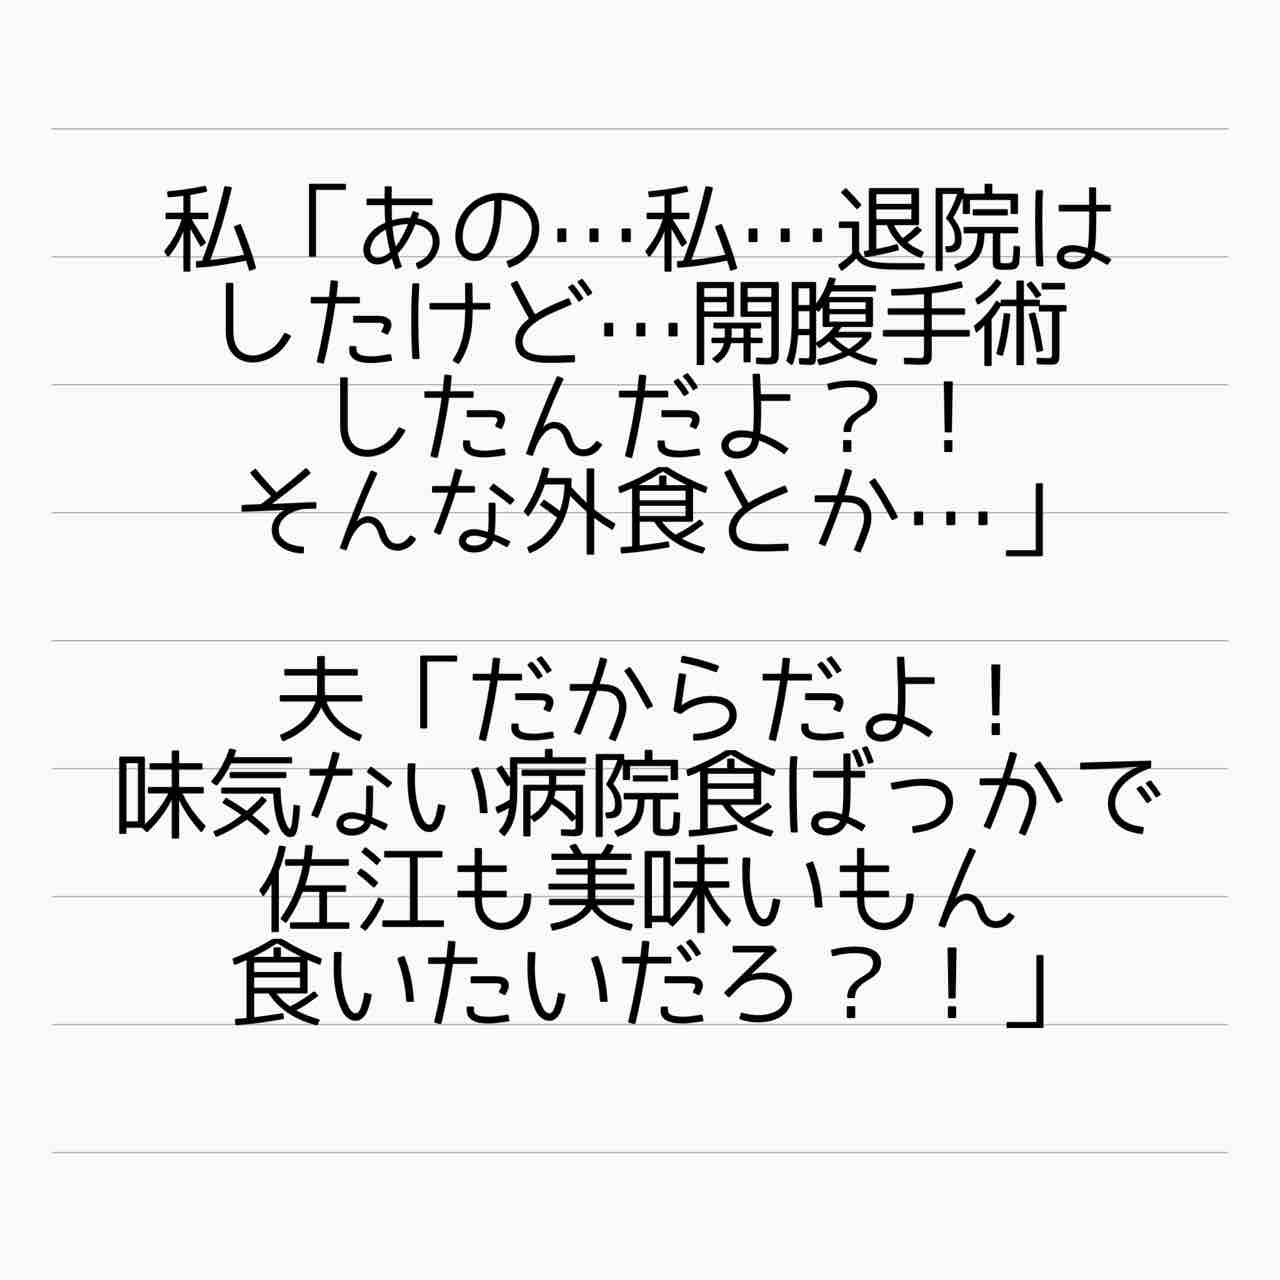 私「あの…私…退院は
したけど…開腹手術
したんだよ？！
そんな外食とか…」
夫「だからだよ！
味気ない病院食ばっかで
佐江も美味いもん
食いたいだろ？！」